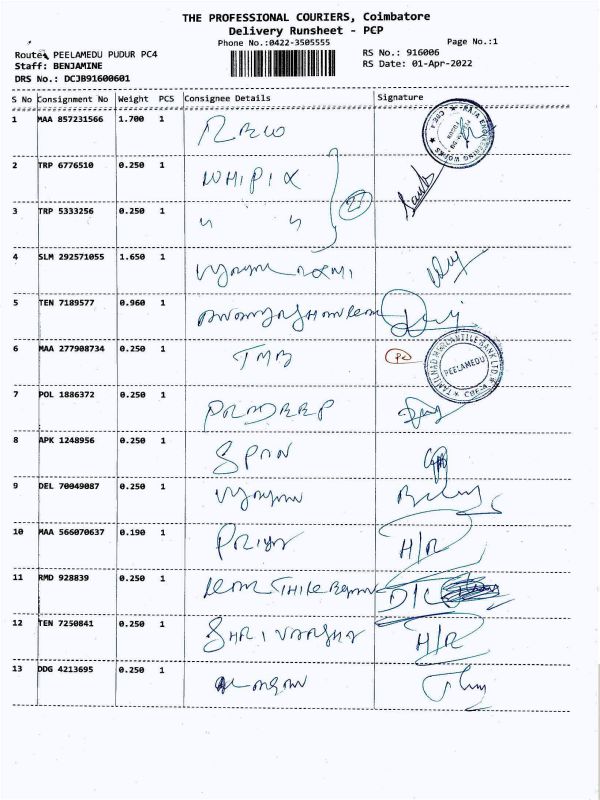 THE PROFESSIONAL COURIERS, Coimbatore
Delivery Runsheet - PCP
Phone No.:0422-3505555
Page No.:1
Route: PEELAMEDU PUDUR PC4
RS No.: 916006
Staff: BENJAMINE
RS Date: 01-Apr-2022
DRS No.: DCJB91600601
S No Consignment No Weight PCS Consignee Details Signature
1 MAA 857231566 1.700 1
2 TRP 6776510 0.250 1 WHIPIX
3 TRP 5333256 0.250 1 " "
4 SLM 292571055 1.650 1
5 TEN 7189577 0.960 1
6 MAA 277908734 0.250 1 TMB
TAMILNAD MERCANTILE BANK LTD.
PEELAMEDU
CBE-4
7 POL 1886372 0.250 1 PRADEEP
8 APK 1248956 0.250 1 SPAN
9 DEL 70049087 0.250 1
10 MAA 566070637 0.190 1 PRIYA H/R
11 RMD 928839 0.250 1 D/C
12 TEN 7250841 0.250 1 SHRI VARSHA H/R
13 DDG 4213695 0.250 1